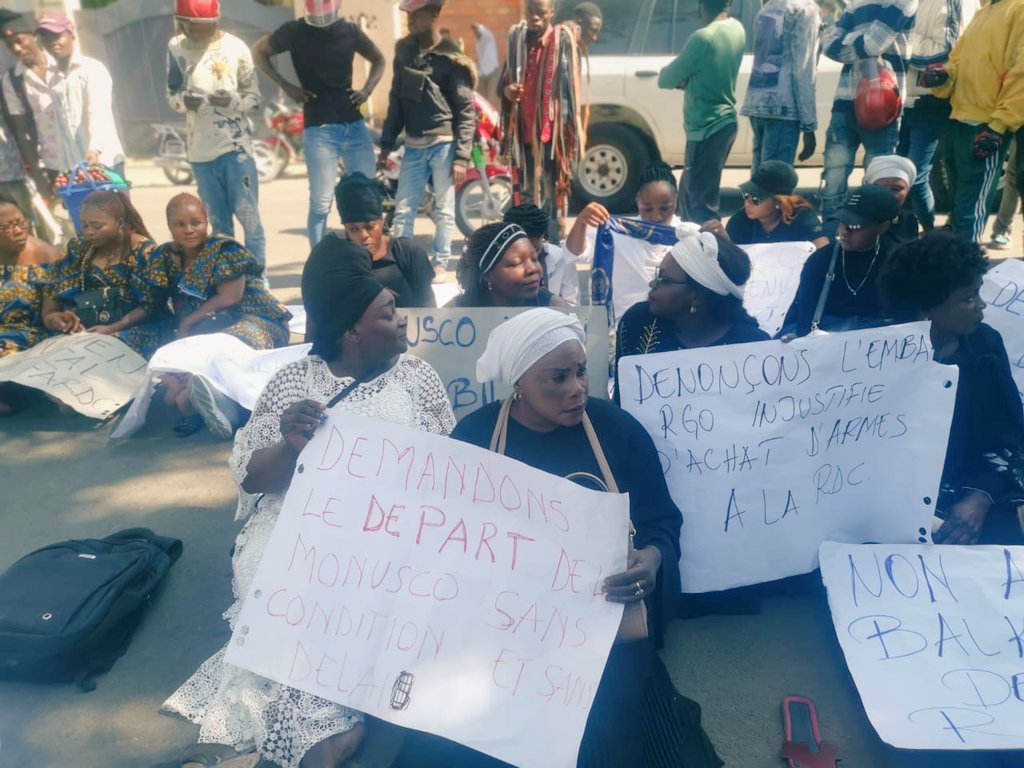 DEMANDONS
LE DEPART DE L
MONUSCO SANS
CONDITION ET SANS
DELAI
DENONÇONS L'EMBA
RGO INJUSTIFIE
D'ACHAT D'ARMES
A LA RDC.
NON A
BALK
DE
R
MONUSCO
BIL